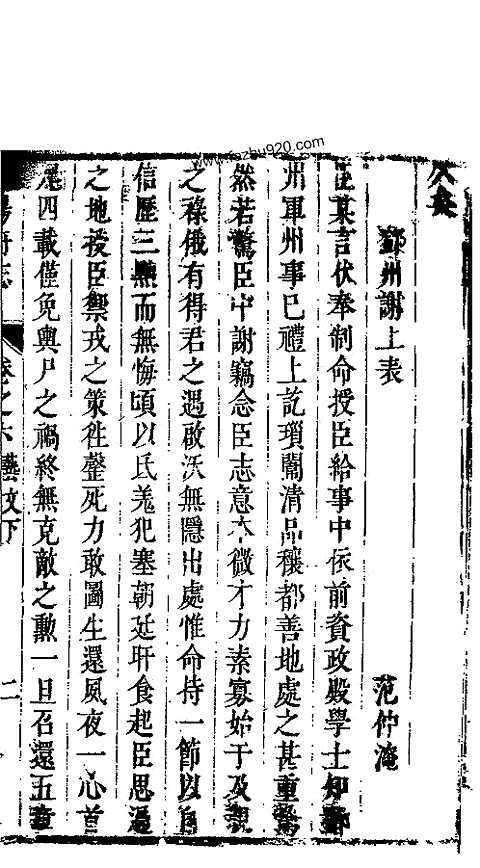 www.fozhu920.com
鄧州謝上表　范仲淹
臣某言伏奉制命授臣給事中依前資政殿學士知鄧
州軍州事已禮上訖瑣闈清品穰都善地處之甚重驚
然若驚臣中謝竊念臣志意本微才力素寡始于及親
之祿俄有得君之遇啟沃無隱出處惟命持一節以自
信歷三黜而無悔頃以氐羌犯塞朝廷旰食起臣思過
之地授臣禦戎之策徃罄死力敢圖生還夙夜一心首
尾四載僅免輿尸之禍終無克敵之勳一旦召還五章
陽府志 卷之六 藝文下 二